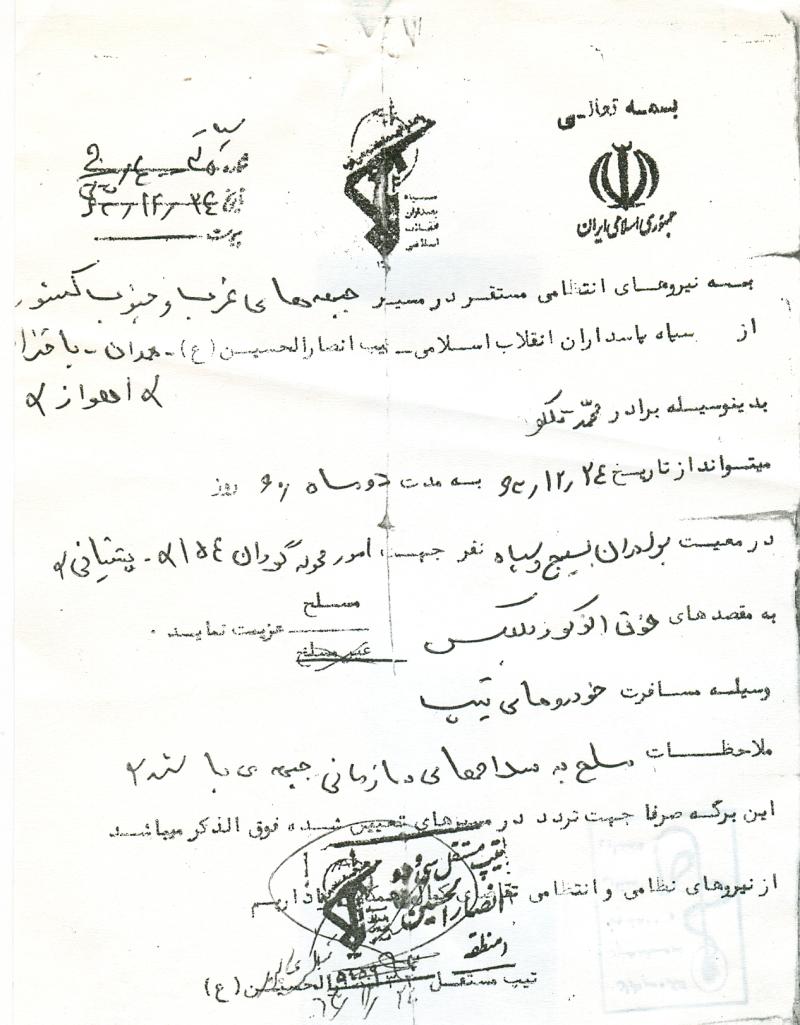 بسمه تعالی
جمهوری اسلامی ایران
سپاه
پاسداران
انقلاب
اسلامی
شماره
تاریخ ۶۳/۱۲/۲٤
پیوست
بسمه نیروهای انتظامی مستقر در مسیر جبهه‌های غرب و جنوب کشور
از سپاه پاسداران انقلاب اسلامی - تیپ انصارالحسین (ع) - همدان - باختران
اهواز
بدینوسیله برادر محمد تکلو
میتواند از تاریخ ۶۳/۱۲/۲٤ بسه مدت دو ماه ۶۰ روز
در معیست برادران بسیج و سپاه نفر جهت امور محوله گردان ۱۵٤ - پشتیبانی
به مقصدهای فوق الذکر و بالعکس
مسلح
غیر مسلح
عزیمت نمایند ٠
وسیلسه مسافرت خودروهای تیپ
ملاحظات مسلح به سلاحهای سازمانی جبهه می باشند
این برگه صرفا جهت تردد در مسیرهای تعیین شده فوق الذکر میباشد
از نیروهای نظامی و انتظامی تقاضای داریم
تیپ مستقل سی و دو
انصارالحسین
منطقه
تیپ مستقل انصارالحسین (ع)